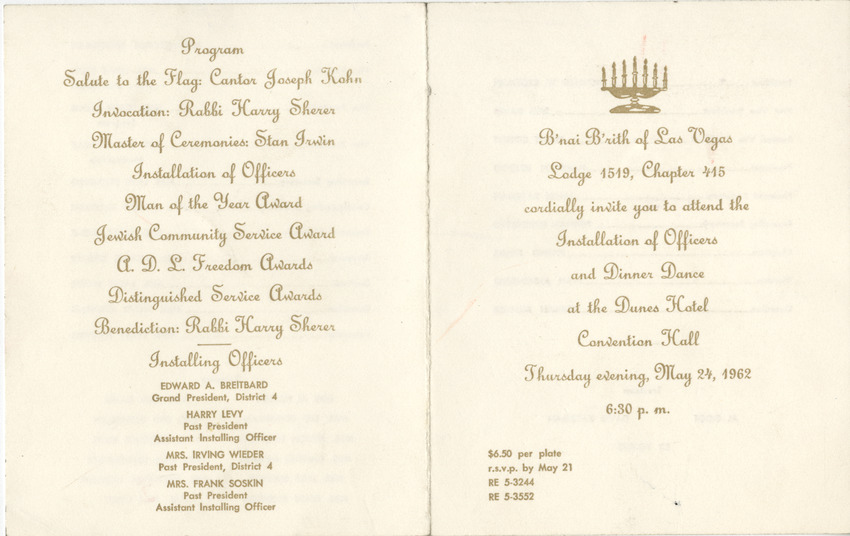 Program
Salute to the Flag: Cantor Joseph Kohn
Invocation: Rabbi Harry Sherer
Master of Ceremonies: Stan Irwin
Installation of Officers
Man of the Year Award
Jewish Community Service Award
A. D. L. Freedom Awards
Distinguished Service Awards
Benediction: Rabbi Harry Sherer
Installing Officers
EDWARD A. BREITBARD
Grand President, District 4
HARRY LEVY
Past President
Assistant Installing Officer
MRS. IRVING WIEDER
Past President, District 4
MRS. FRANK SOSKIN
Past President
Assistant Installing Officer
B'nai B'rith of Las Vegas
Lodge 1519, Chapter 415
cordially invite you to attend the
Installation of Officers
and Dinner Dance
at the Dunes Hotel
Convention Hall
Thursday evening, May 24, 1962
6:30 p. m.
$6.50 per plate
r.s.v.p. by May 21
RE 5-3244
RE 5-3552